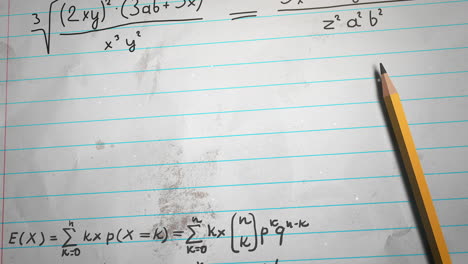 ∛((2xy)²·(3ab+5x) / x³y²) = / z²a²b²
E(X) = ∑ⁿₖ₌₀ kx p(X=k) = ∑ⁿₖ₌₀ kx (n k) pᵏqⁿ⁻ᵏ